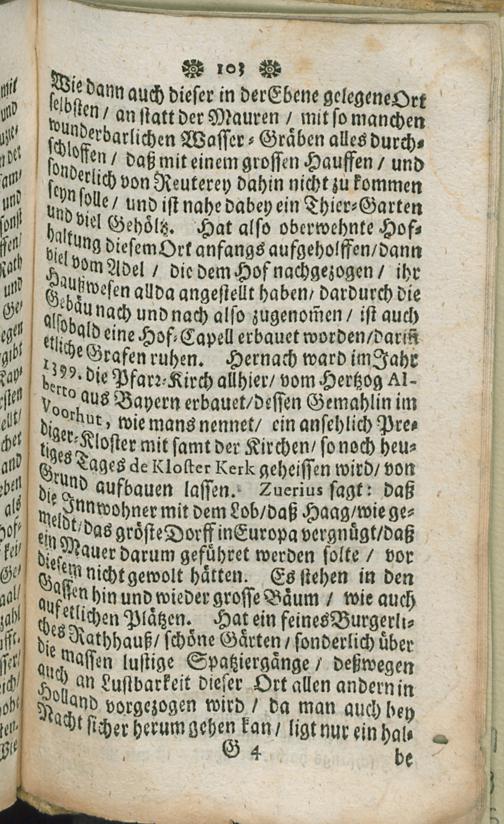 103
Wie dann auch dieser in der Ebene gelegene Ort
selbsten / an statt der Mauren / mit so manchen
wunderbarlichen Wasser-Gräben alles durch-
schlossen / daß mit einem grossen Hauffen / und
sonderlich von Reuterey dahin nicht zu kommen
seyn solle / und ist nahe dabey ein Thier-Garten
und viel Gehöltz. Hat also oberwehnte Hof-
haltung diesem Ort anfangs aufgeholffen / dann
viel vom Adel / die dem Hof nachgezogen / ihr
Haußwesen allda angestellt haben / dardurch die
Gebäu nach und nach also zugenom̃en / ist auch
alsobald eine Hof-Capell erbauet worden / dariñ
etliche Grafen ruhen. Hernach ward im Jahr
1399. die Pfarr-Kirch allhier / vom Hertzog Al-
berto aus Bayern erbauet / dessen Gemahlin im
Voorhut, wie mans nennet / ein ansehlich Pre-
diger-Kloster mit samt der Kirchen / so noch heu-
tiges Tages de Kloster Kerk geheissen wird / von
Grund aufbauen lassen. Zuerius sagt: daß
die Innwohner mit dem Lob / daß Haag / wie ge-
meldt / das gröste Dorff in Europa vergnügt / daß
ein Mauer darum geführet werden solte / vor
diesem nicht gewolt hätten. Es stehen in den
Gassen hin und wieder grosse Bäum / wie auch
auf etlichen Plätzen. Hat ein feines Burgerli-
ches Rathhauß / schöne Gärten / sonderlich über
die massen lustige Spatziergänge / deßwegen
auch an Lustbarkeit dieser Ort allen andern in
Holland vorgezogen wird / da man auch bey
Nacht sicher herum gehen kan / ligt nur ein hal-
G 4 be